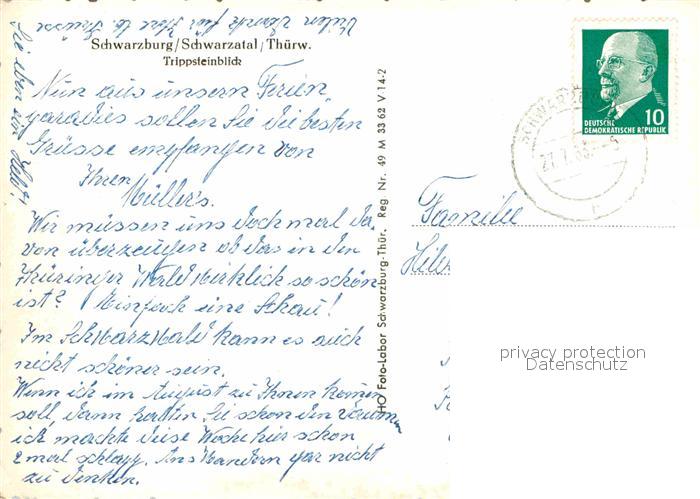 Vielen Dank für Ihre lb. Grüsse
Sie eben von Selbst
Schwarzburg/Schwarzatal/Thürw.
Trippsteinblick
Nun aus unsern Ferien
paradies sollen Sie die besten
Grüsse empfangen von
Ihren
Müller's.
Wir müssen uns doch mal da-
von überzeugen ob das in den
Thüringer Wald wirklich so schön
ist? Einfach eine Schau!
Im Schwarzwald kann es auch
nicht schöner sein.
Wenn ich im August zu Ihnen komen
soll, dann halten Sie schon den Daumen
ich machte diese Woche hier schon
2 mal schlapp. Ans Wandern gar nicht
zu denken.
HO Foto-Labor Schwarzburg-Thür. Reg Nr. 49 M 33 62 V-14-2
SCHWARZ
27.7.6
DEUTSCHE
DEMOKRATISCHE REPUBLIK
10
Familie
privacy protection
Datenschutz